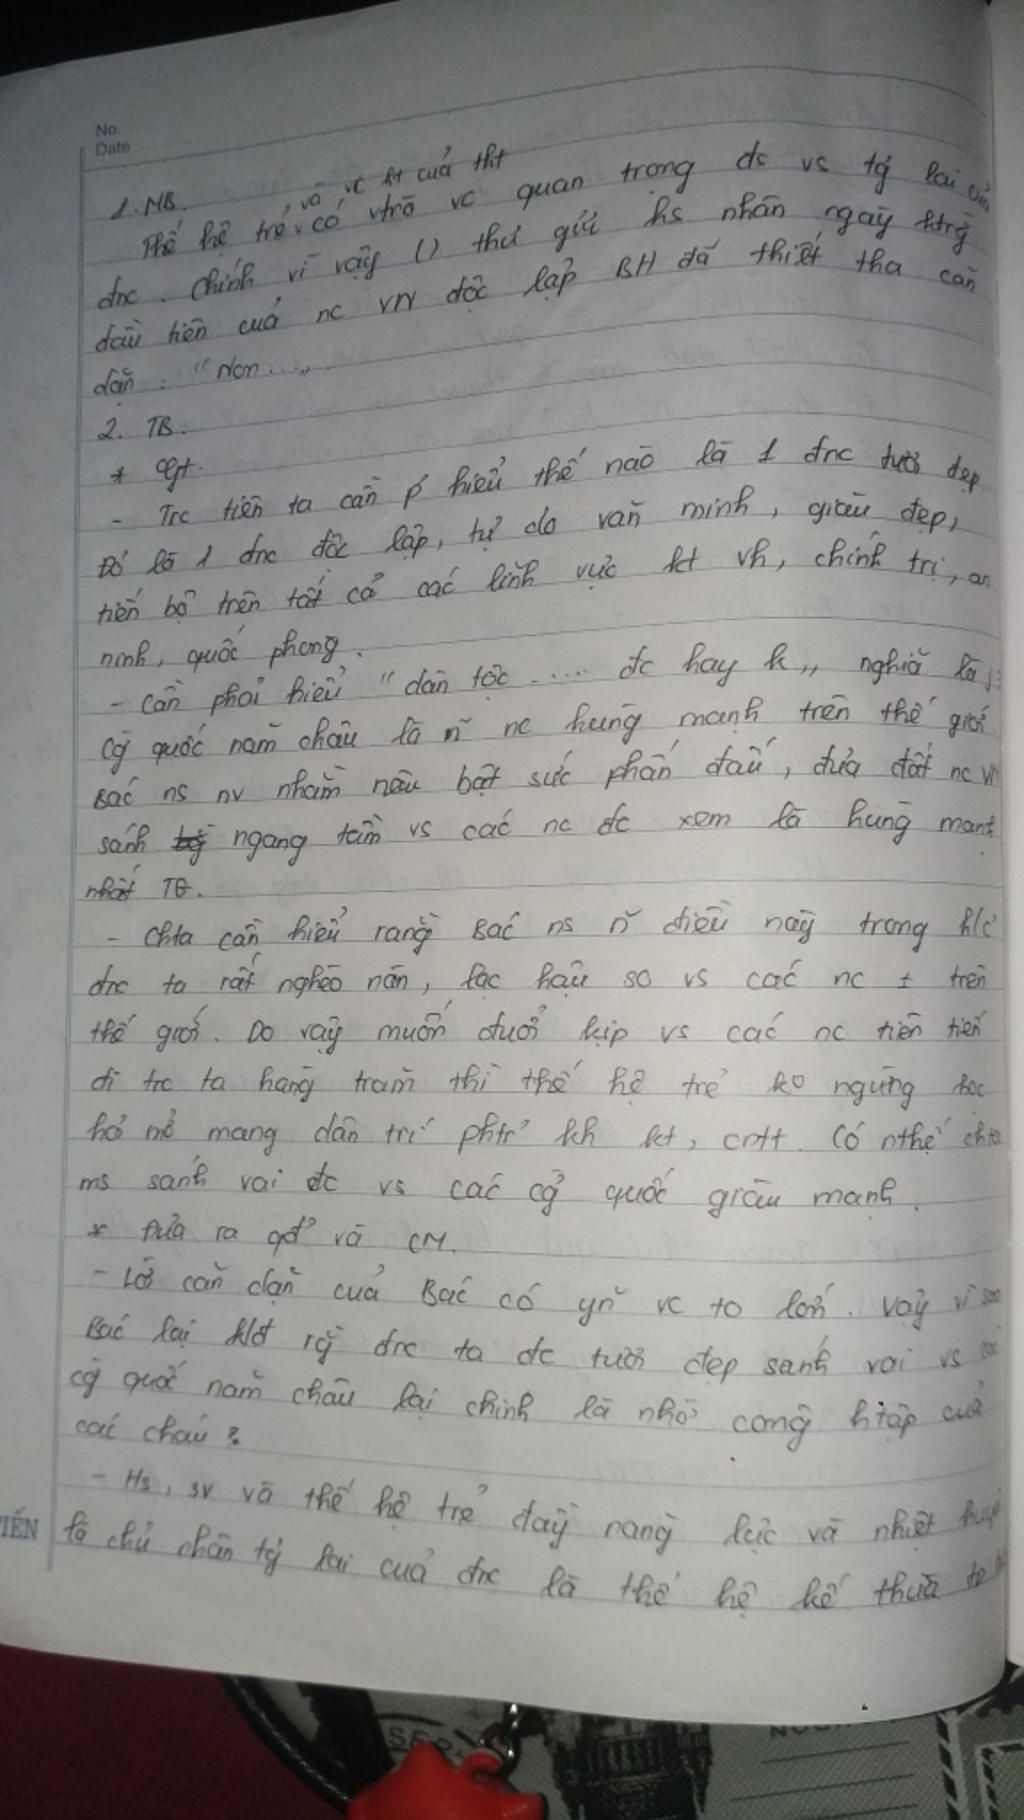 No.
Date
, và vc ht của tht
1. MB.
Thế hệ trẻ có vtrò vc quan trong đc vs tg lai của
đnc. Chính vì vậy () thư gửi hs nhân ngày ktrg
đầu tiên của nc VN độc lập BH đã thiết tha căn
dặn: "Non....„
2. TB.
* Gt.
- Trc tiên ta cần p' hiểu thế nào là 1 đnc tươi đẹp
Đó là 1 đnc độc lập, tự do văn minh, giàu đẹp,
tiến bộ trên tất cả các lĩnh vực kt vh, chính trị, an
ninh, quốc phòng.
- Cần phải hiểu "dân tộc ..... đc hay k„ nghĩa là
cg quốc năm châu là n~ nc hùng mạnh trên thế giới
Bác ns nv nhằm nêu bật sức phấn đấu, đưa đất nc VN
sánh ngang tầm vs các nc đc xem là hùng mạnh
nhất TG.
- Chta cần hiểu rằng Bác ns n~ điều này trong h/c
đnc ta rất nghèo nàn, lạc hậu so vs các nc ± trên
thế giới. Do vậy muốn đuổi kịp vs các nc tiên tiến
đi trc ta hàng trăm thì thế hệ trẻ ko ngừng học
hỏi mở mang dân trí phtr' kh kt, cntt. Có nthế chta
ms sánh vai đc vs các cg quốc giàu mạnh.
* Đưa ra qđ' và CM.
- Lời căn dặn của Bác có yn~ vc to lớn. Vậy vì sao
Bác lại klđ rg đnc ta đc tươi đẹp sánh vai vs các
cg quốc năm châu lại chính là nhờ công htập của
các cháu?
- Hs, sv và thế hệ trẻ đầy năng lực và nhiệt huyết
TIẾN
là chủ nhân tg lai của đnc là thế hệ kế thừa